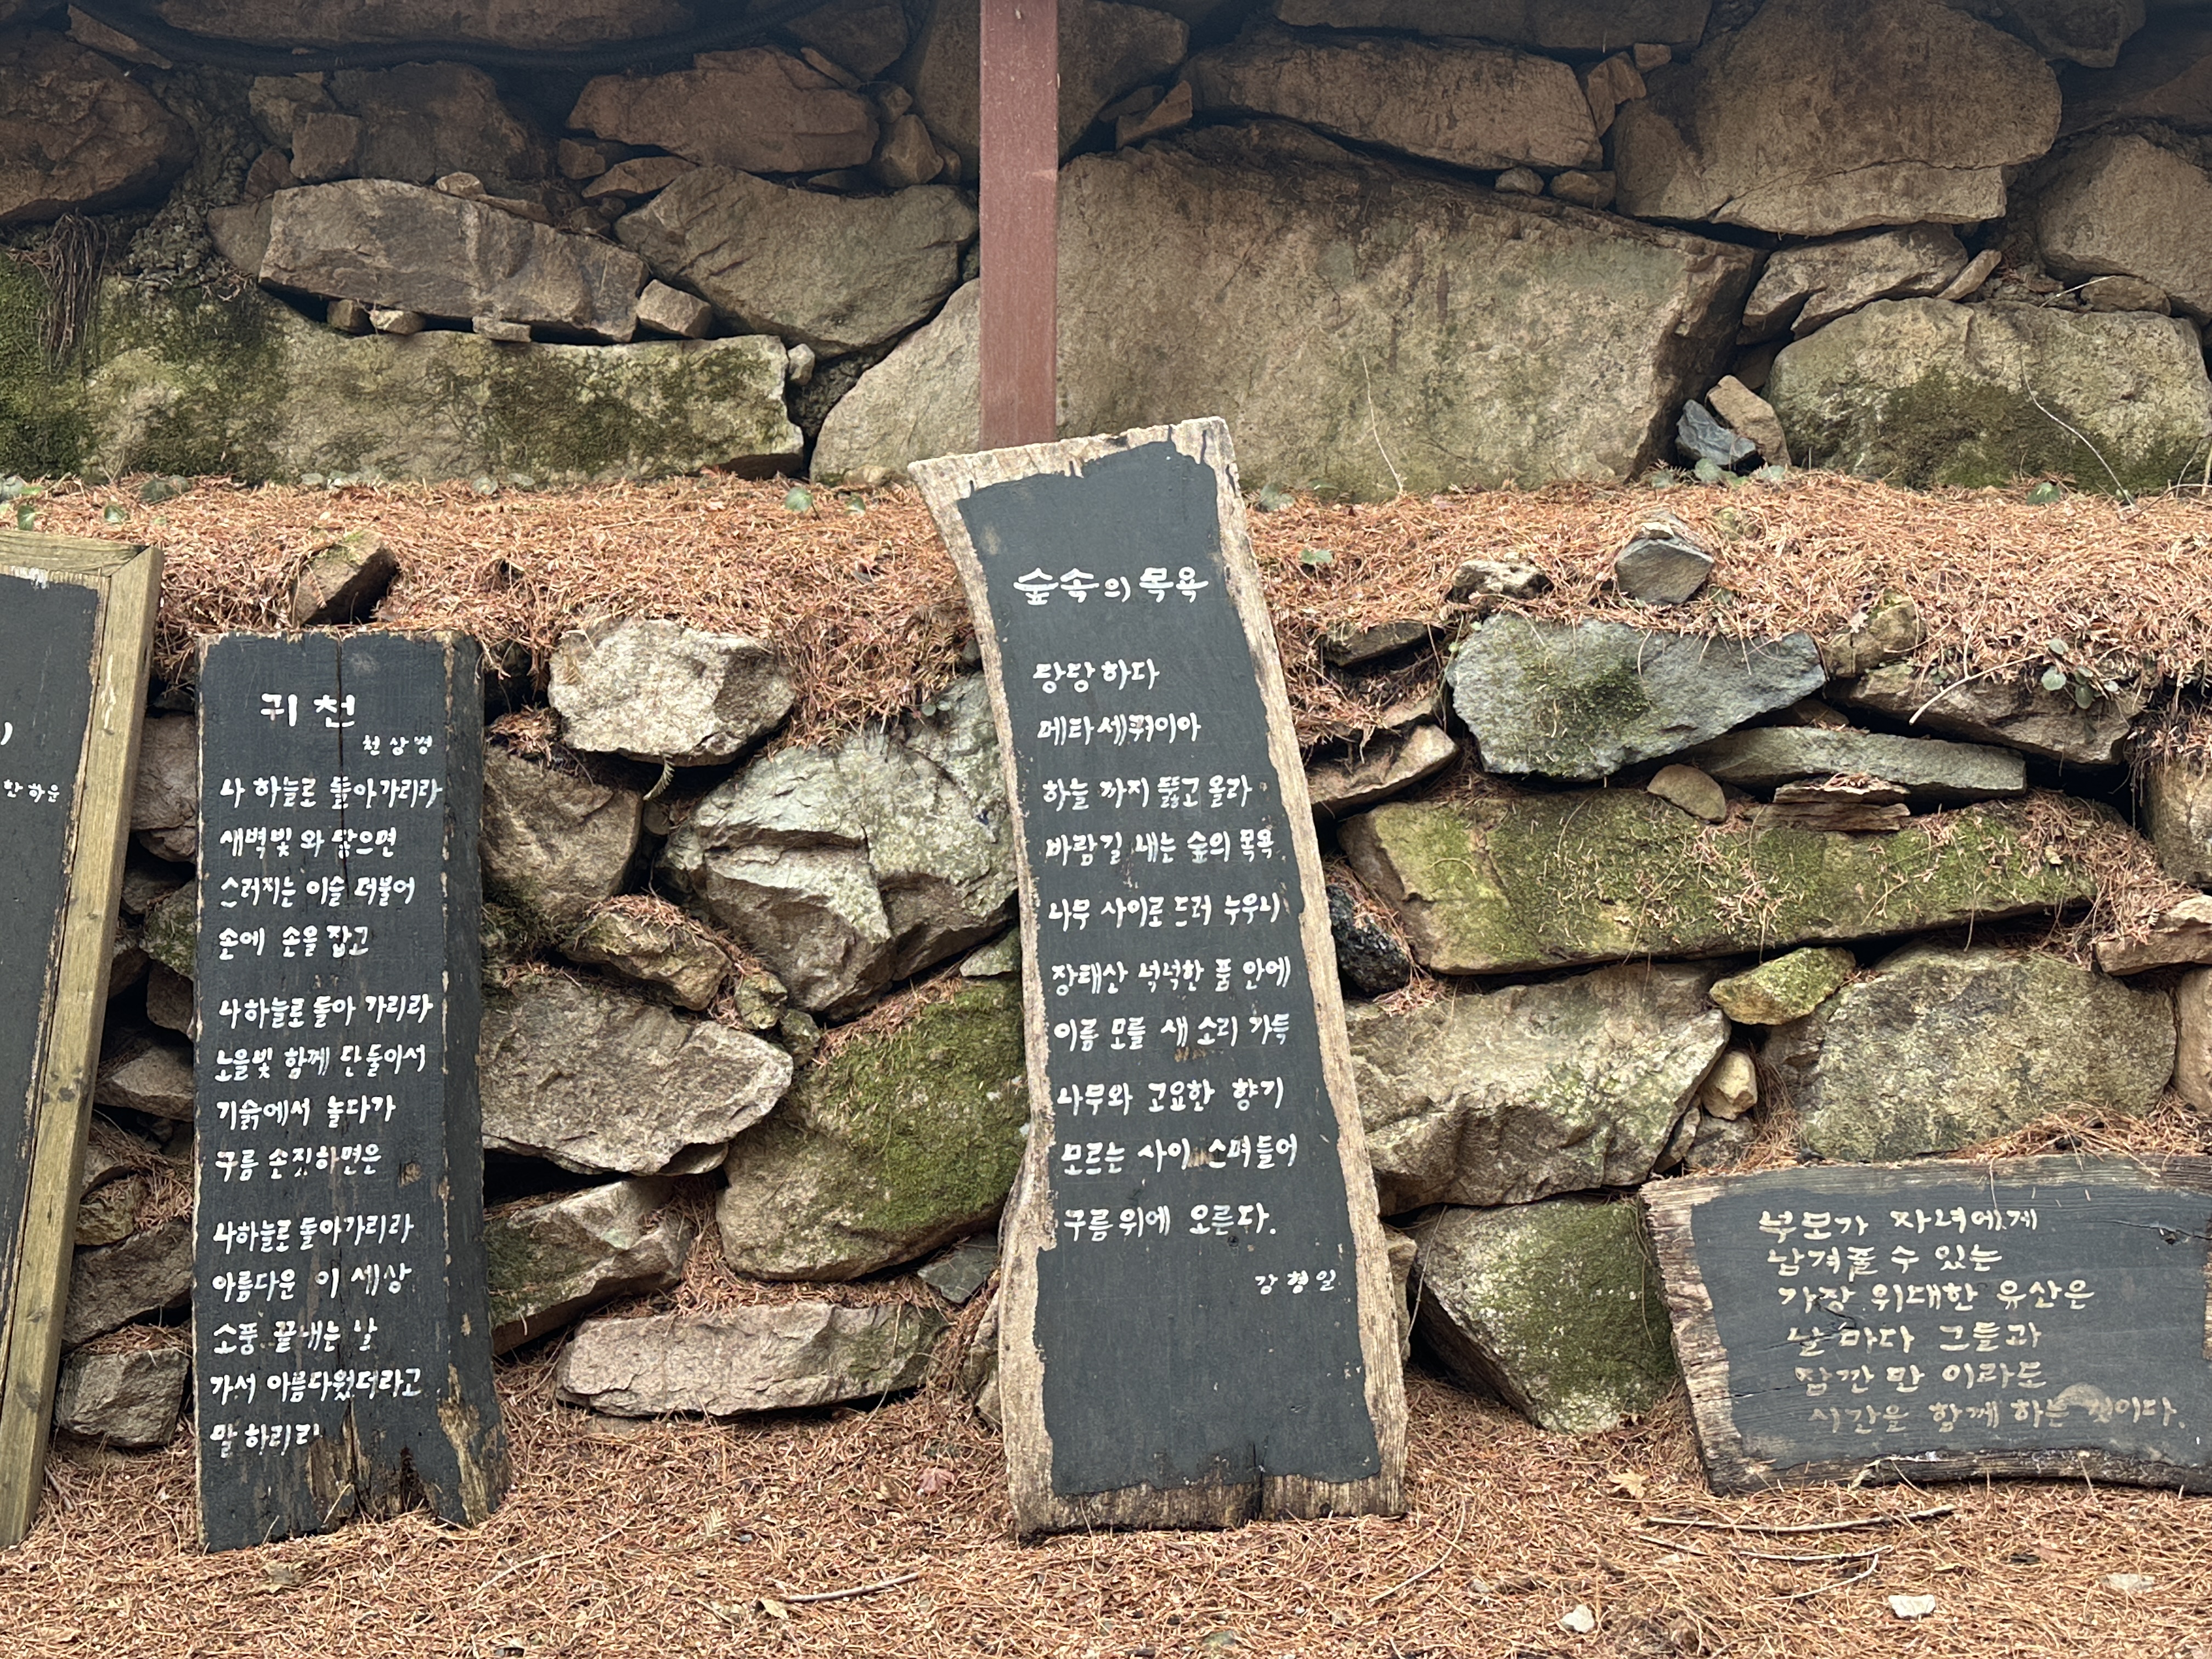 한하운
귀천
천상병
나 하늘로 돌아가리라
새벽빛 와 닿으면
스러지는 이슬 더불어
손에 손을 잡고
나 하늘로 돌아 가리라
노을빛 함께 단 둘이서
기슭에서 놀다가
구름 손짓하면은
나 하늘로 돌아가리라
아름다운 이 세상
소풍 끝내는 날
가서 아름다웠더라고
말 하리라
숲속의 목욕
당당하다
메타세쿼이아
하늘 까지 뚫고 올라
바람길 내는 숲의 목욕
나무 사이로 드러 누우니
장태산 넉넉한 품 안에
이름 모를 새 소리 가득
나무와 고요한 향기
모르는 사이 스며들어
구름위에 오른다.
강형일
부모가 자녀에게
남겨줄 수 있는
가장 위대한 유산은
날마다 그들과
잠깐 만 이라도
시간을 함께 하는 것이다.